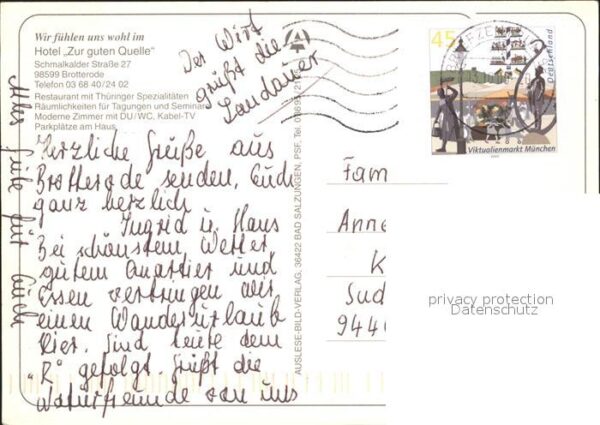 Wir fühlen uns wohl im
Hotel „Zur guten Quelle"
Schmalkalder Straße 27
98599 Brotterode
Telefon 03 68 40/24 02
Restaurant mit Thüringer Spezialitäten
Räumlichkeiten für Tagungen und Seminare
Moderne Zimmer mit DU/WC, Kabel-TV
Parkplätze am Haus
Der Wirt
grüßt die
Landauer
Herzliche Grüße aus
Brotterode senden Euch
ganz herzlich
Ingrid u. Hans
Bei schönstem Wetter,
gutem Quartier und
Essen verbringen wir
einen Wanderurlaub
hier. Sind heute dem
"R" gefolgt. Grüßt die
Naturfreunde von uns
Alles Gute für Euch
AUSLESE-BILD-VERLAG, 36422 BAD SALZUNGEN, PSF, Tel.
45
Deutschland
Viktualienmarkt München
Fam
Anne
K
Sud
944
privacy protection
Datenschutz